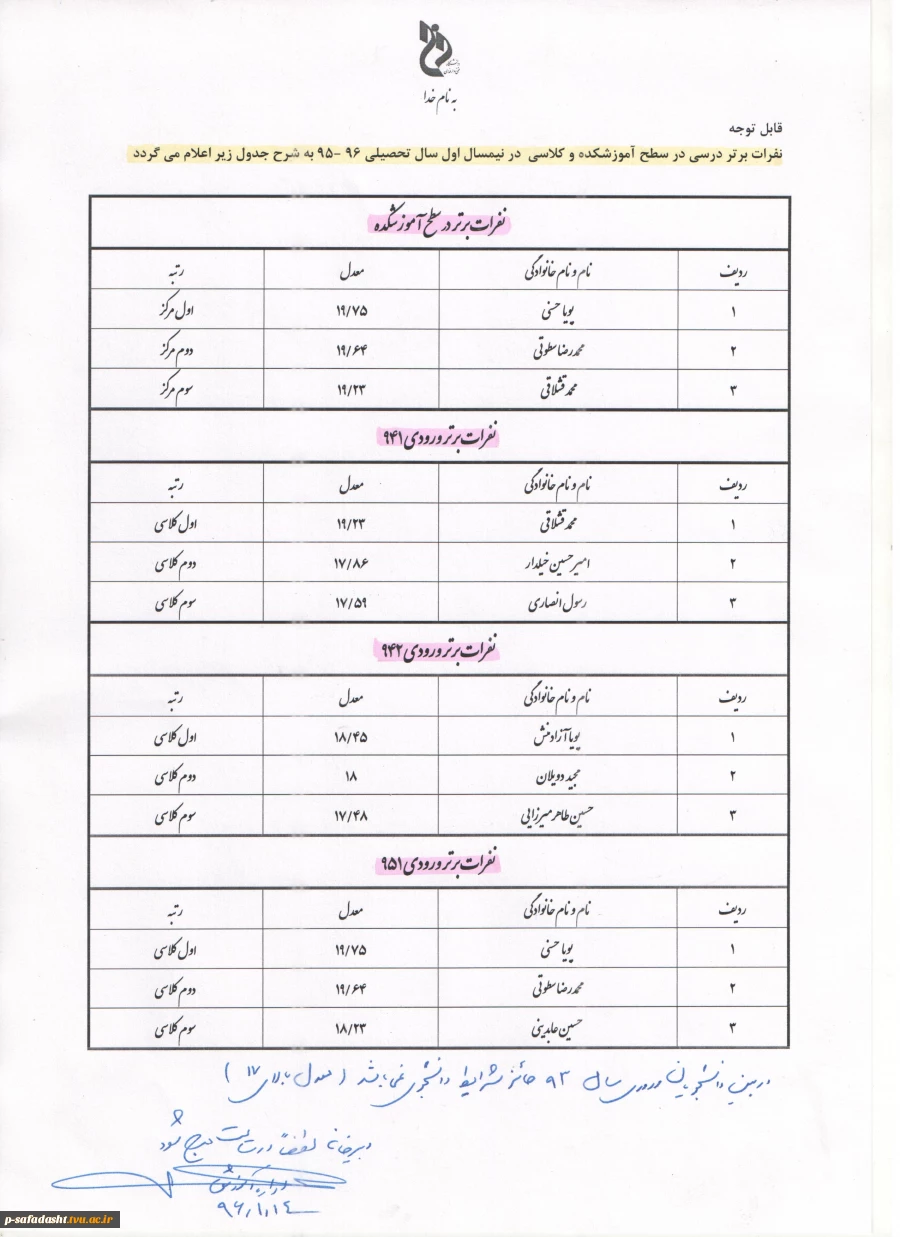 به نام خدا
قابل توجه
نفرات برتر درسی در سطح آموزشکده و کلاسی در نیمسال اول سال تحصیلی ۹۶ -۹۵ به شرح جدول زیر اعلام می گردد
نفرات برتر در سطح آموزشکده
ردیف نام و نام خانوادگی معدل رتبه
۱ پویا حسنی ۱۹/۷۵ اول مرکز
۲ محمدرضا سطوتی ۱۹/۶۴ دوم مرکز
۳ محمد قشلاقی ۱۹/۲۳ سوم مرکز
نفرات برتر ورودی ۹۴۱
ردیف نام و نام خانوادگی معدل رتبه
۱ محمد قشلاقی ۱۹/۲۳ اول کلاسی
۲ امیرحسین خیلدار ۱۷/۸۶ دوم کلاسی
۳ رسول انصاری ۱۷/۵۹ سوم کلاسی
نفرات برتر ورودی ۹۴۲
ردیف نام و نام خانوادگی معدل رتبه
۱ پویا آزادمنش ۱۸/۴۵ اول کلاسی
۲ مجید دویلان ۱۸ دوم کلاسی
۳ حسین طاهر میرزایی ۱۷/۴۸ سوم کلاسی
نفرات برتر ورودی ۹۵۱
ردیف نام و نام خانوادگی معدل رتبه
۱ پویا حسنی ۱۹/۷۵ اول کلاسی
۲ محمدرضا سطوتی ۱۹/۶۴ دوم کلاسی
۳ حسین عابدینی ۱۸/۲۳ سوم کلاسی
در بین دانشجویان ورودی سال ۹۳ حائز شرایط دانشجوی نمی باشد (معدل بالای ۱۷)
دبیرخانه لطفاً در سایت درج شود
اداره آموزش
۹۶/۱/۱۴
p-safadasht.tvu.ac.ir